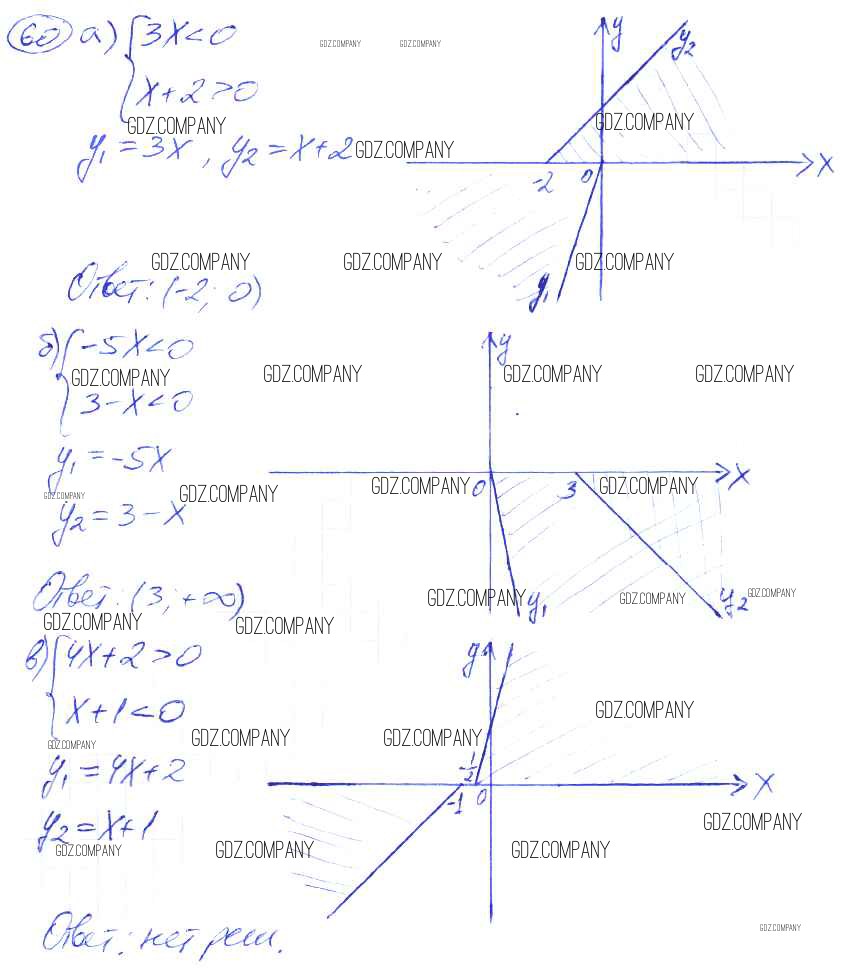 60 а) { 3x<0
GDZ.COMPANY GDZ.COMPANY
x+2>0
GDZ.COMPANY
y₁=3x, y₂=x+2
GDZ.COMPANY
y
y₂
GDZ.COMPANY
-2 0 x
GDZ.COMPANY GDZ.COMPANY GDZ.COMPANY
y₁
Ответ: (-2; 0)
б) { -5x<0
GDZ.COMPANY GDZ.COMPANY GDZ.COMPANY GDZ.COMPANY
3-x<0
y₁=-5x
GDZ.COMPANY GDZ.COMPANY GDZ.COMPANY GDZ.COMPANY
y₂=3-x
y
0 3 x
y₁ y₂
Ответ: (3; +∞)
GDZ.COMPANY GDZ.COMPANY GDZ.COMPANY
GDZ.COMPANY GDZ.COMPANY
в) { 4x+2>0
x+1<0
GDZ.COMPANY
GDZ.COMPANY GDZ.COMPANY GDZ.COMPANY
y₁=4x+2
y
-1/2
-1 0 x
y₂=x+1
GDZ.COMPANY
GDZ.COMPANY GDZ.COMPANY GDZ.COMPANY
Ответ: нет реш.
GDZ.COMPANY